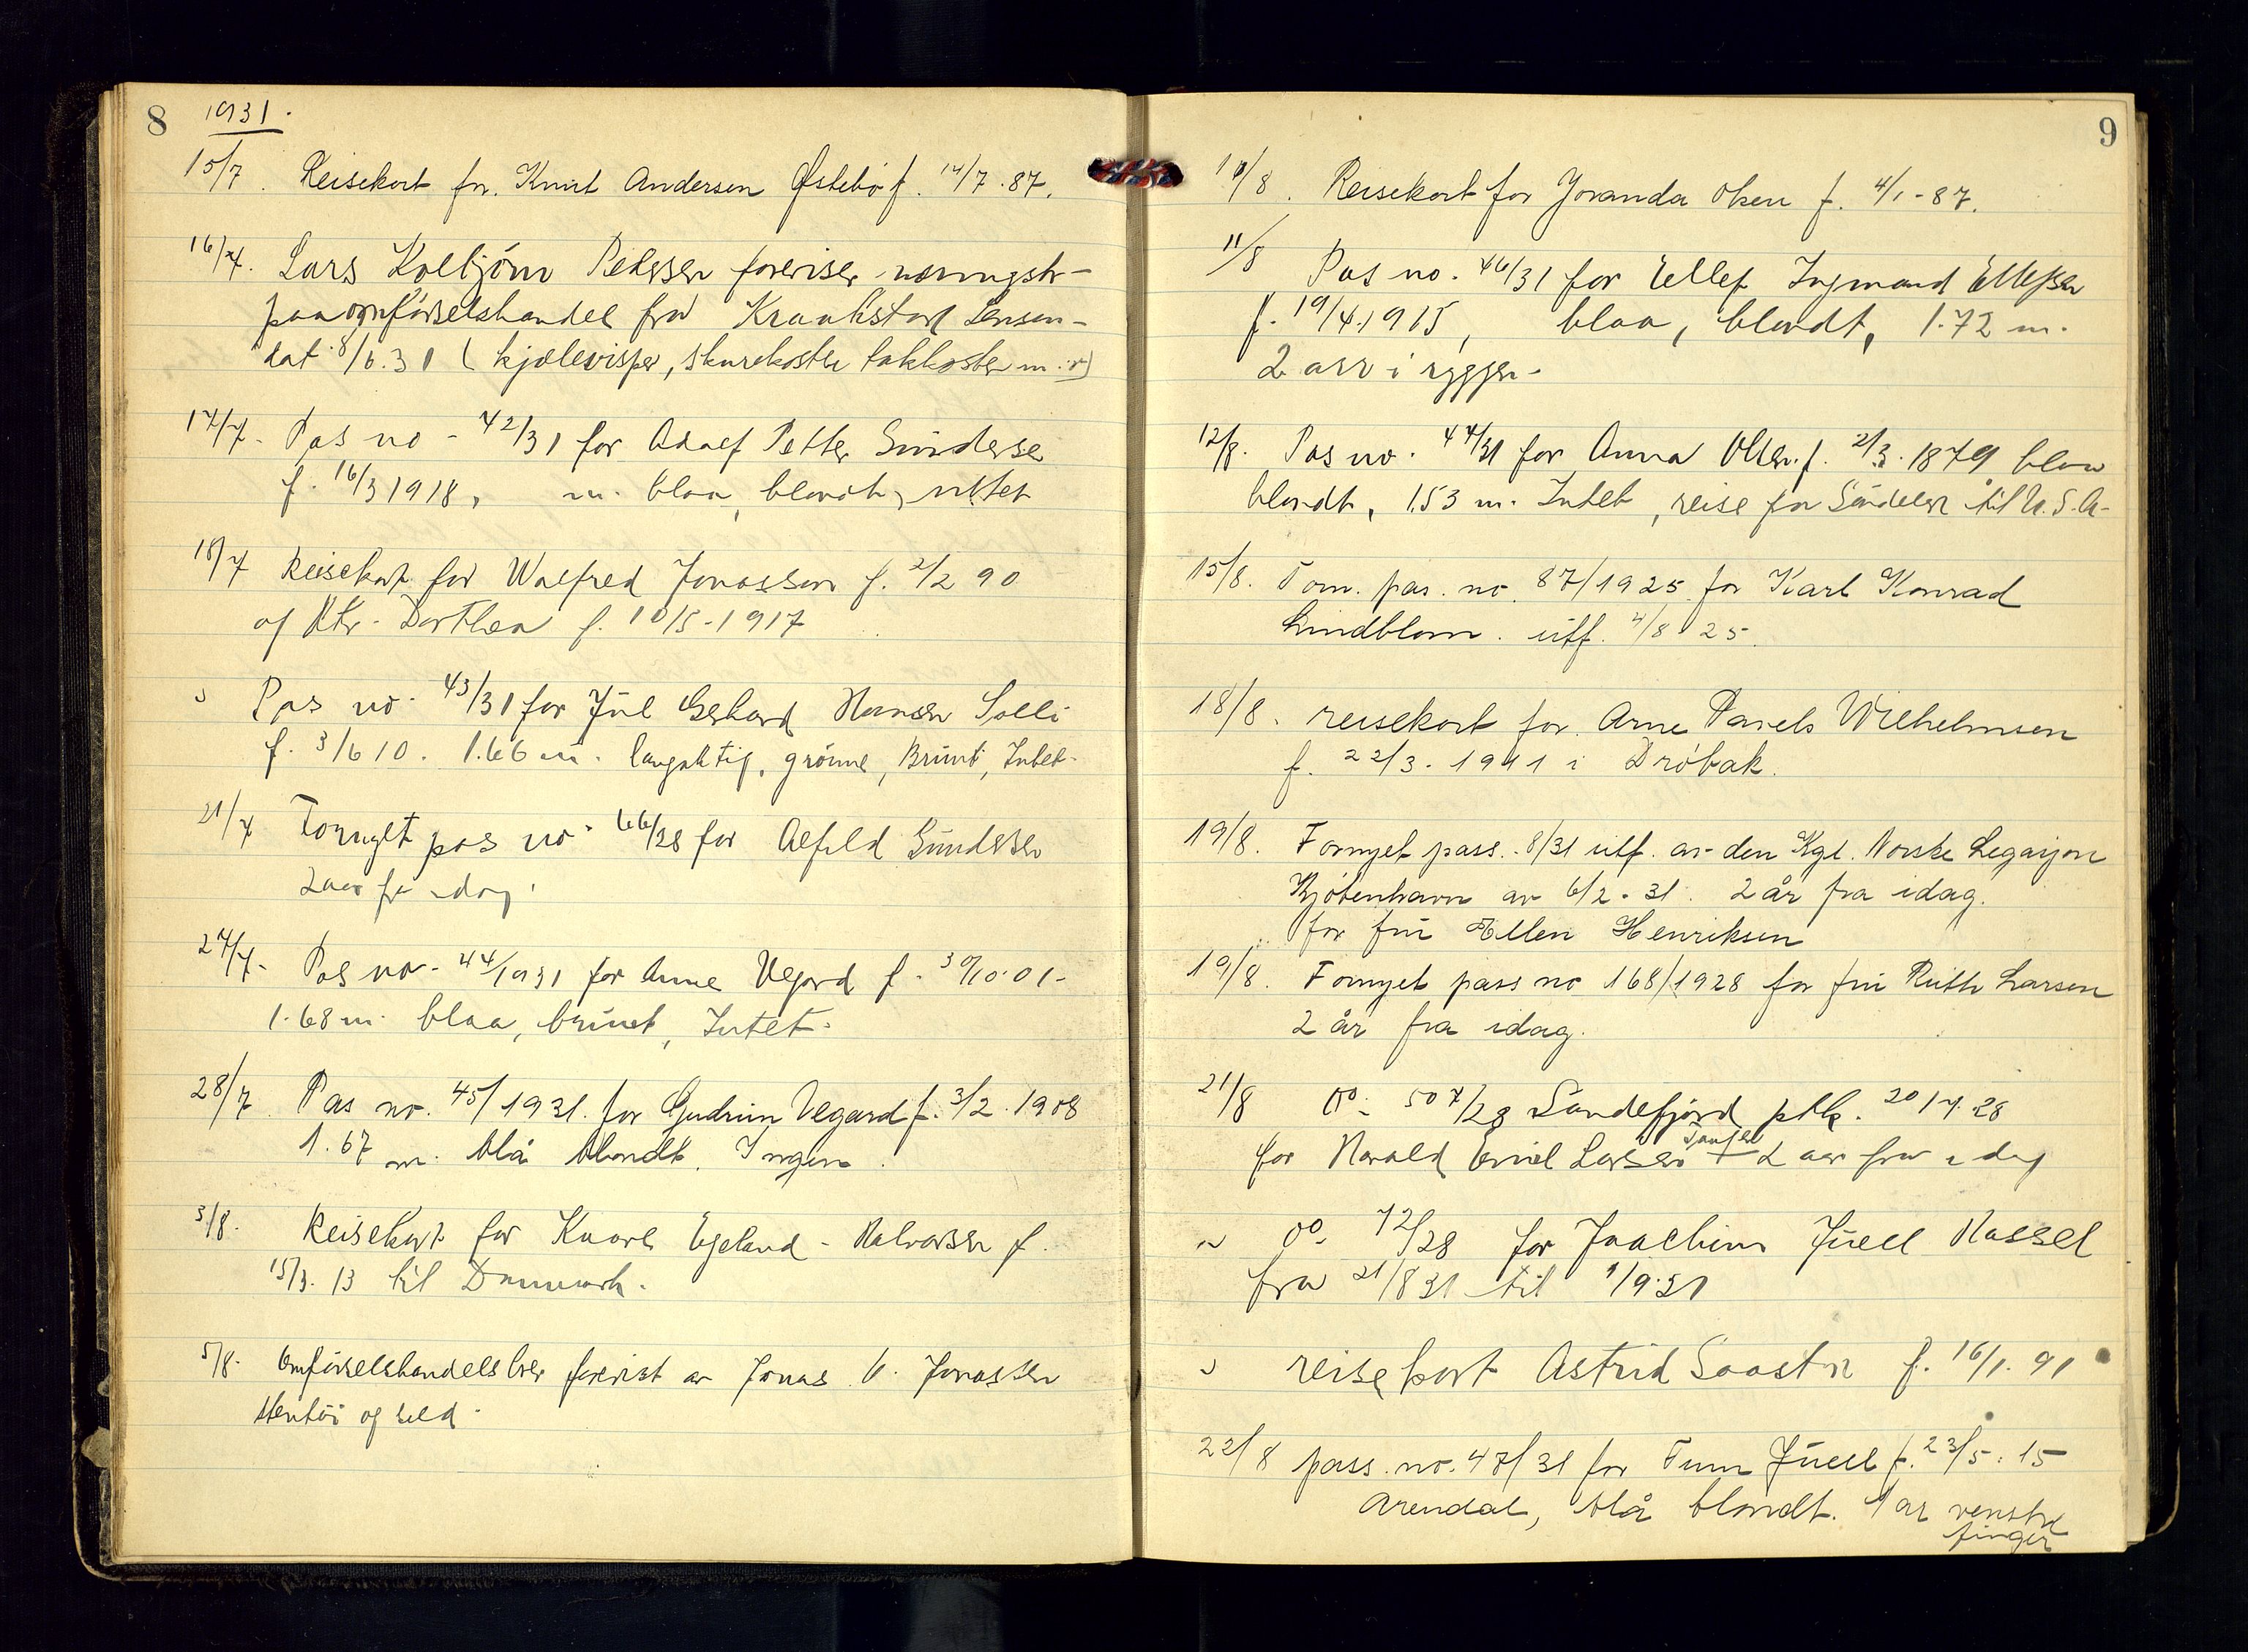 8
1931.
15/7. Reisekort for. Knut Andersen Østebö f. 14/7.87.
16/7. Lars Kolbjörn Pedersen foreviser
paa omförselshandel fra Kraakstad Lensm-
dat 8/6.31 ( kjælevisper, skurekoster takkoster m.v)
17/7. Pas no - 42/31 for Adolf Petter Gundersen
f. 16/3 1918, m. blaa, blondt, intet
18/7 Reisekort for Walfred Jonassen f. 2/2 90
og Dorthea f. 10/5-1917
Pas no. 43/31 for Jul Gerhard Hansen Solli
f. 3/6 10. 1.66 m. langaktig, grönne, Brunt, Intet.
21/7 Fornyet pas no. 66/28 for Alfild Gundersen
2 aar fra idag.
27/7. Pas no - 44/1931 for Anne Vegard f. 30/10.01-
1.68 m. blaa, brunt, Intet.
28/7. Pas no. 45/1931. for Gudrun Vegard f. 3/2.1908
1.67 m. blå blondt. Ingen.
3/8. Reisekort for Kaare Egeland-Halvorsen f.
15/3.13 til Danmark.
5/8. Omförselshandelsbrev forevist av Jonas Jonassen
Stentöi og
9
10/8. Reisekort for Jovanda Olsen f. 4/1-87.
11/8 Pas no. 46/31 for Ellef Ingmand Ellefsen
f. 19/4.1915, blaa, blondt, 1.72 m.
2 arr i ryggen.
12/8. Pas no. 47/31 for Anna Olsen f. 2/3.1879 blaa
blondt, 1.53 m. Intet, reise for til U.S.A-
15/8. Forn. pas. no. 87/1925 for Karl Konrad
Lindblom. utf. 4/8 25.
18/8. reisekort for. Arne Parels Wilhelmsen
f. 22/3.1911 i Dröbak.
19/8. Fornyet pass. 8/31 utf. av den Kgl. Norske Legasjon
Kjöbenhavn av 6/2.31. 2 år fra idag.
for fru Ellen Henriksen
19/8. Fornyet pass no 168/1928 for fru Ruth Larsen
2 år fra idag.
21/8 Do. 507/28 Sandefjord ptk. 20/4.28
for Harald Emil Larsen 2 aar fra idag
" Do. 72/28 for Joachim Juell Hassel
fra 21/8 31 til 1/9.31
reisekort Astrid f. 16/1.91
22/8 pass. no. 47/31 for Juell f. 23/5.15
Arendal, blå blondt. 1 ar venstre
finger